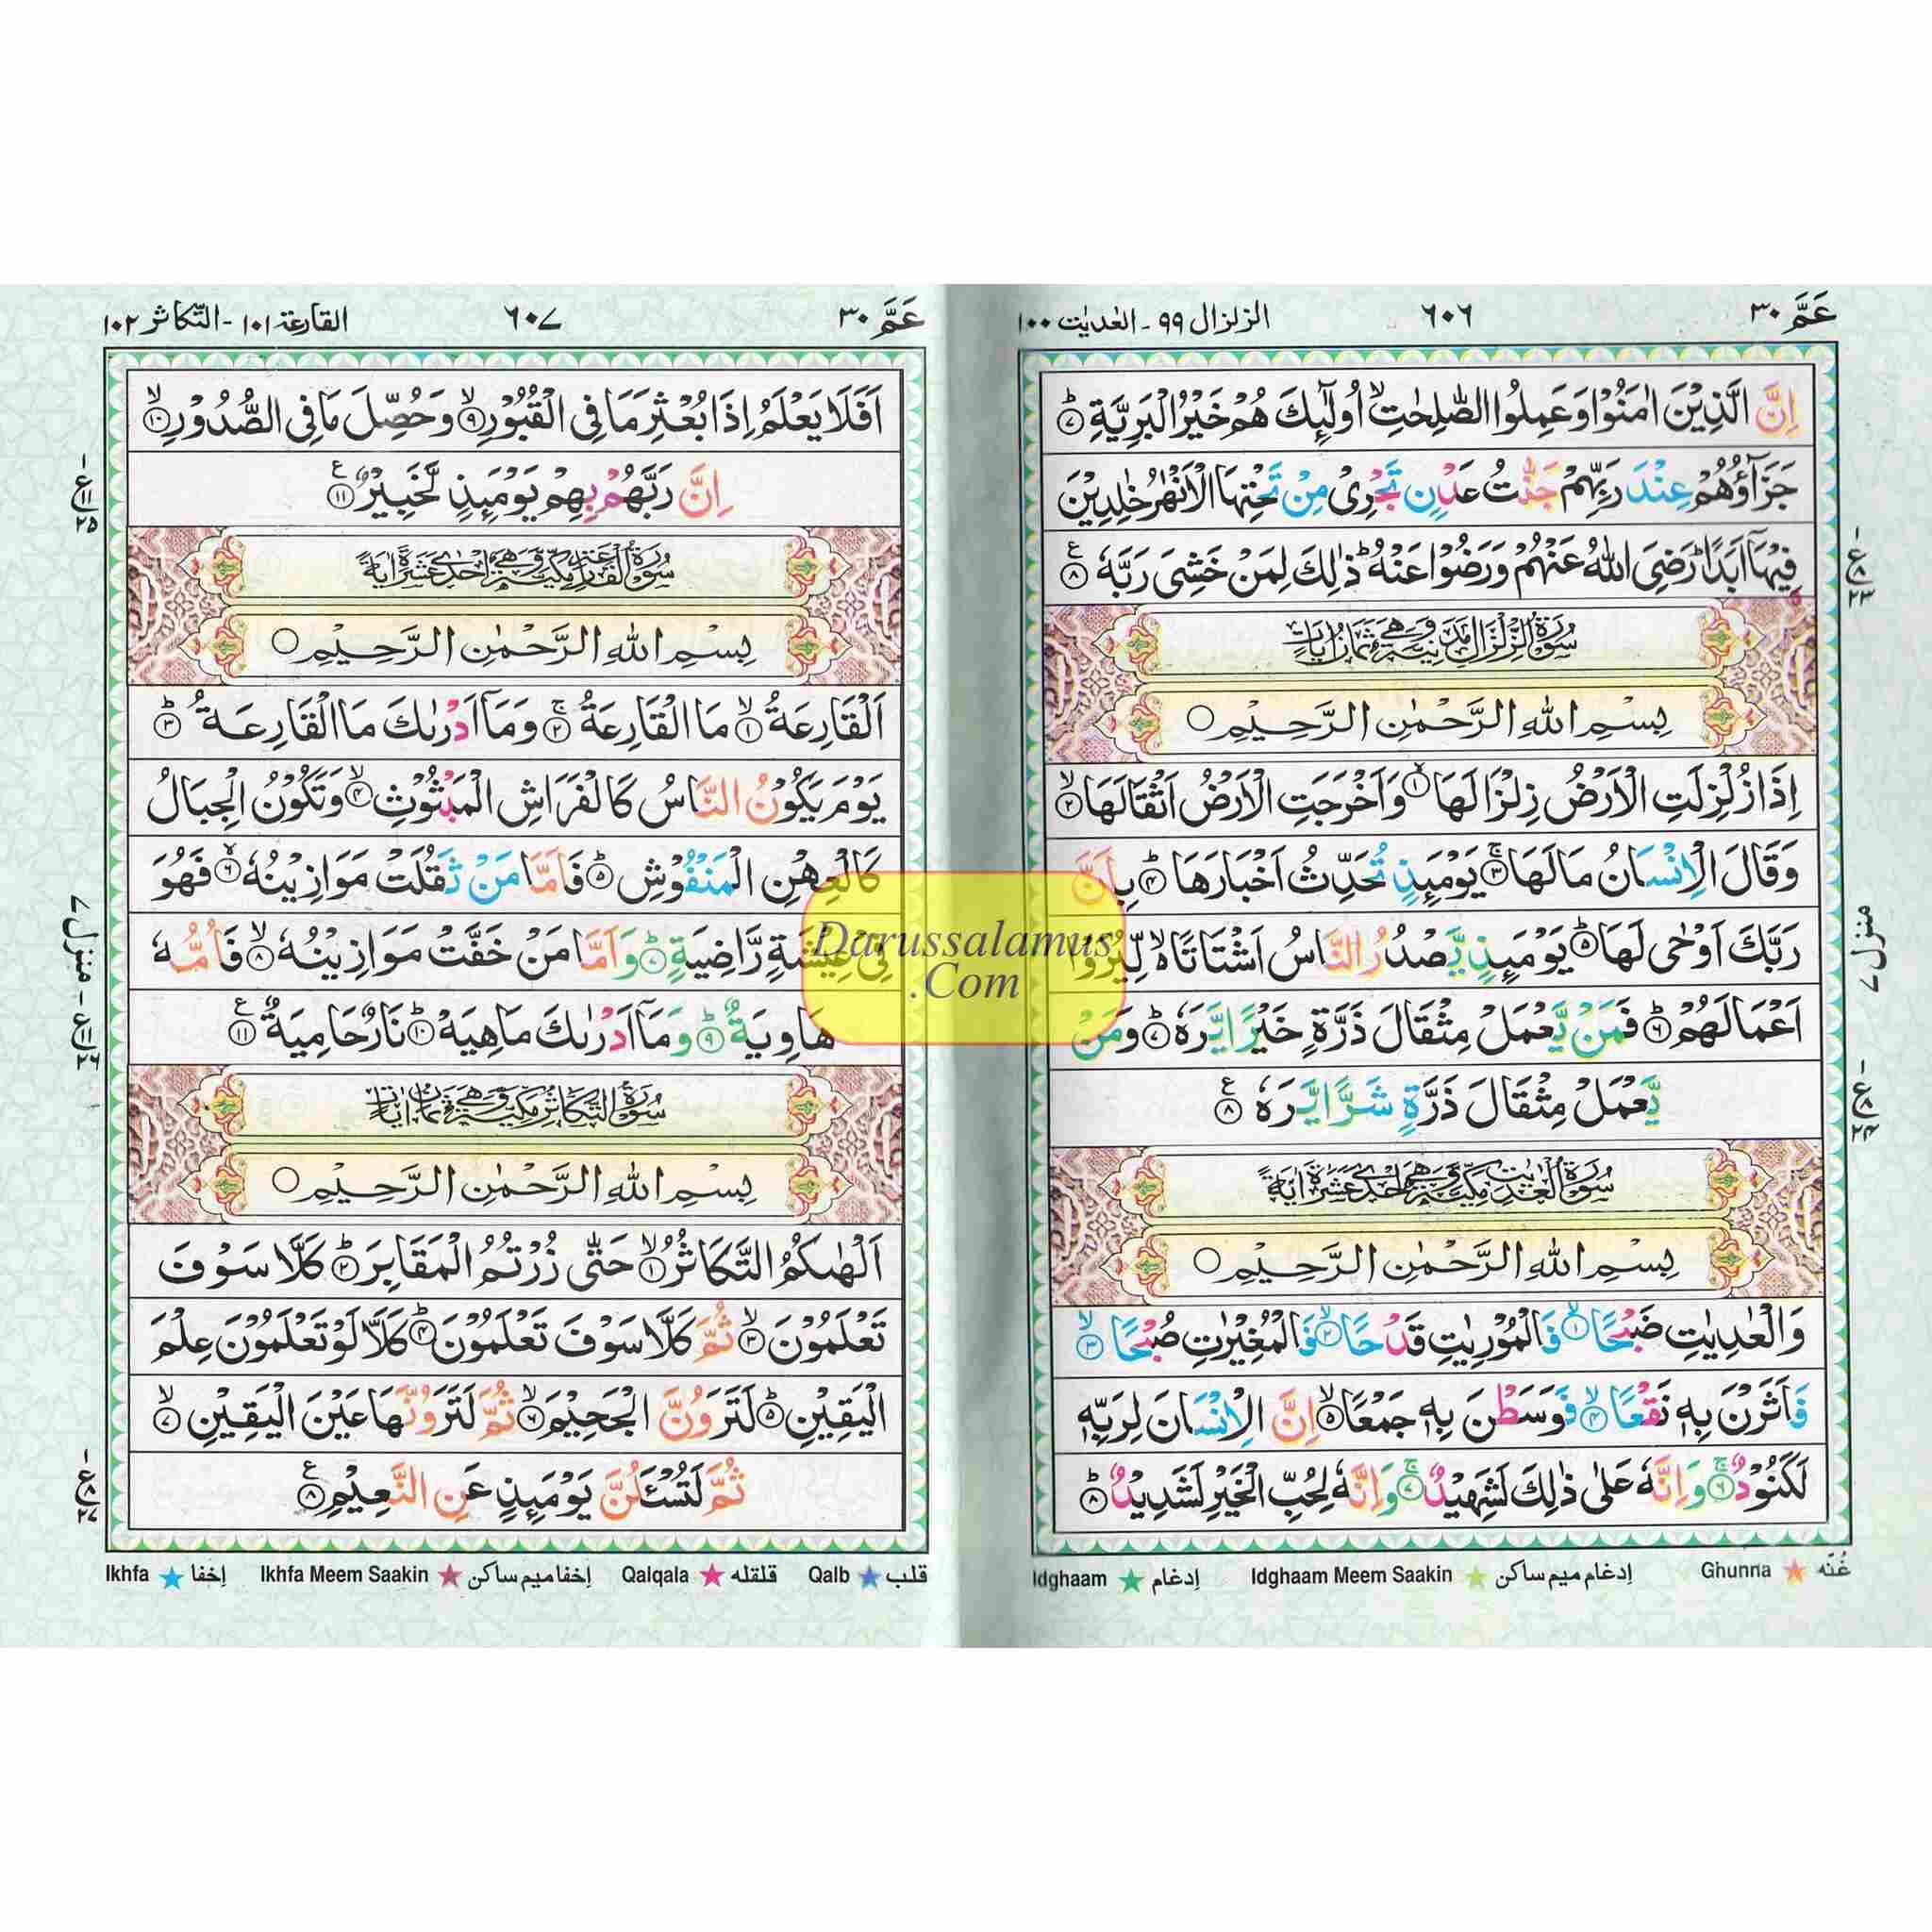 عَمَّ ٣٠
٦٠٦
الزلزال ٩٩ - العٰدیٰت ١٠٠
اِنَّ الَّذِیْنَ اٰمَنُوْا وَعَمِلُوا الصّٰلِحٰتِ ۙ اُولٰٓئِكَ هُمْ خَیْرُ الْبَرِیَّةِ ؕ ٧
جَزَآؤُهُمْ عِنْدَ رَبِّهِمْ جَنّٰتُ عَدْنٍ تَجْرِیْ مِنْ تَحْتِهَا الْاَنْهٰرُ خٰلِدِیْنَ
فِیْهَاۤ اَبَدًا ؕ رَضِیَ اللّٰهُ عَنْهُمْ وَرَضُوْا عَنْهُ ؕ ذٰلِكَ لِمَنْ خَشِیَ رَبَّهٗ ٨
سُوْرَةُ الزِّلْزَالِ مَدَنِیَّةٌ وَّهِیَ ثَمَانُ اٰیَاتٍ
بِسْمِ اللّٰهِ الرَّحْمٰنِ الرَّحِیْمِ
اِذَا زُلْزِلَتِ الْاَرْضُ زِلْزَالَهَا ۙ ١ وَاَخْرَجَتِ الْاَرْضُ اَثْقَالَهَا ۙ ٢
وَقَالَ الْاِنْسَانُ مَا لَهَا ۚ ٣ یَوْمَئِذٍ تُحَدِّثُ اَخْبَارَهَا ؕ ٤ بِاَنَّ
رَبَّكَ اَوْحٰی لَهَا ؕ ٥ یَوْمَئِذٍ یَّصْدُرُ النَّاسُ اَشْتَاتًا ۙ۬ لِّیُرَوْا
اَعْمَالَهُمْ ؕ ٦ فَمَنْ یَّعْمَلْ مِثْقَالَ ذَرَّةٍ خَیْرًا یَّرَهٗ ؕ ٧ وَمَنْ
یَّعْمَلْ مِثْقَالَ ذَرَّةٍ شَرًّا یَّرَهٗ ٨
سُوْرَةُ الْعٰدِیٰتِ مَكِّیَّةٌ وَّهِیَ اِحْدٰی عَشْرَةَ اٰیَةً
بِسْمِ اللّٰهِ الرَّحْمٰنِ الرَّحِیْمِ
وَالْعٰدِیٰتِ ضَبْحًا ۙ ١ فَالْمُوْرِیٰتِ قَدْحًا ۙ ٢ فَالْمُغِیْرٰتِ صُبْحًا ۙ ٣
فَاَثَرْنَ بِهٖ نَقْعًا ۙ ٤ فَوَسَطْنَ بِهٖ جَمْعًا ۙ ٥ اِنَّ الْاِنْسَانَ لِرَبِّهٖ
لَكَنُوْدٌ ۚ ٦ وَاِنَّهٗ عَلٰی ذٰلِكَ لَشَهِیْدٌ ۚ ٧ وَاِنَّهٗ لِحُبِّ الْخَیْرِ لَشَدِیْدٌ ؕ ٨
ع ٨ ٢٣
منزل ٧
ع ٨ ٢٤
غُنّه Ghunna
إدغام میم ساكن Idghaam Meem Saakin
إدغام Idghaam
عَمَّ ٣٠
٦٠٧
القارعة ١٠١ - التّكاثر ١٠٢
اَفَلَا یَعْلَمُ اِذَا بُعْثِرَ مَا فِی الْقُبُوْرِ ۙ ٩ وَحُصِّلَ مَا فِی الصُّدُوْرِ ۙ ١٠
اِنَّ رَبَّهُمْ بِهِمْ یَوْمَئِذٍ لَّخَبِیْرٌ ١١
سُوْرَةُ الْقَارِعَةِ مَكِّیَّةٌ وَّهِیَ اِحْدٰی عَشْرَةَ اٰیَةً
بِسْمِ اللّٰهِ الرَّحْمٰنِ الرَّحِیْمِ
اَلْقَارِعَةُ ۙ ١ مَا الْقَارِعَةُ ۚ ٢ وَمَاۤ اَدْرٰىكَ مَا الْقَارِعَةُ ؕ ٣
یَوْمَ یَكُوْنُ النَّاسُ كَالْفَرَاشِ الْمَبْثُوْثِ ۙ ٤ وَتَكُوْنُ الْجِبَالُ
كَالْعِهْنِ الْمَنْفُوْشِ ؕ ٥ فَاَمَّا مَنْ ثَقُلَتْ مَوَازِیْنُهٗ ۙ ٦ فَهُوَ
فِیْ عِیْشَةٍ رَّاضِیَةٍ ؕ ٧ وَاَمَّا مَنْ خَفَّتْ مَوَازِیْنُهٗ ۙ ٨ فَاُمُّهٗ
هَاوِیَةٌ ؕ ٩ وَمَاۤ اَدْرٰىكَ مَا هِیَهْ ؕ ١٠ نَارٌ حَامِیَةٌ ١١
سُوْرَةُ التَّكَاثُرِ مَكِّیَّةٌ وَّهِیَ ثَمَانُ اٰیَاتٍ
بِسْمِ اللّٰهِ الرَّحْمٰنِ الرَّحِیْمِ
اَلْهٰىكُمُ التَّكَاثُرُ ۙ ١ حَتّٰی زُرْتُمُ الْمَقَابِرَ ؕ ٢ كَلَّا سَوْفَ
تَعْلَمُوْنَ ۙ ٣ ثُمَّ كَلَّا سَوْفَ تَعْلَمُوْنَ ؕ ٤ كَلَّا لَوْ تَعْلَمُوْنَ عِلْمَ
الْیَقِیْنِ ؕ ٥ لَتَرَوُنَّ الْجَحِیْمَ ۙ ٦ ثُمَّ لَتَرَوُنَّهَا عَیْنَ الْیَقِیْنِ ۙ ٧
ثُمَّ لَتُسْـَٔلُنَّ یَوْمَئِذٍ عَنِ النَّعِیْمِ ٨
ع ١١ ٢٥
منزل ٧ ع ١١ ٢٦
ع ٨ ٢٧
قلب Qalb
قلقله Qalqala
إخفا میم ساكن Ikhfa Meem Saakin
إخفا Ikhfa
Darussalamus
.Com